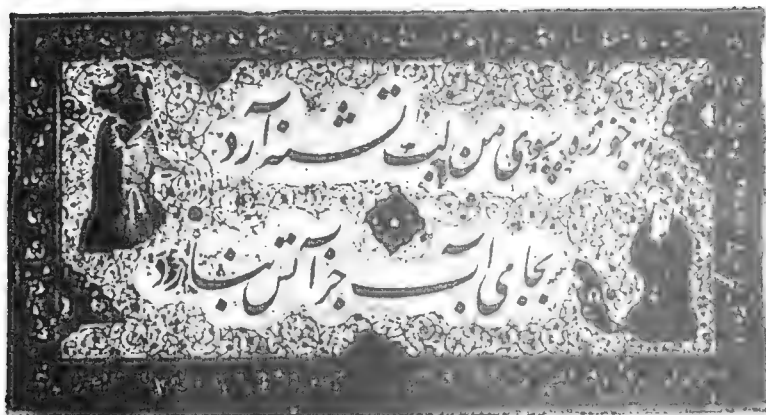 چو ره سوی من لب تشنه آرد
بجای آب جز آتش نبارد